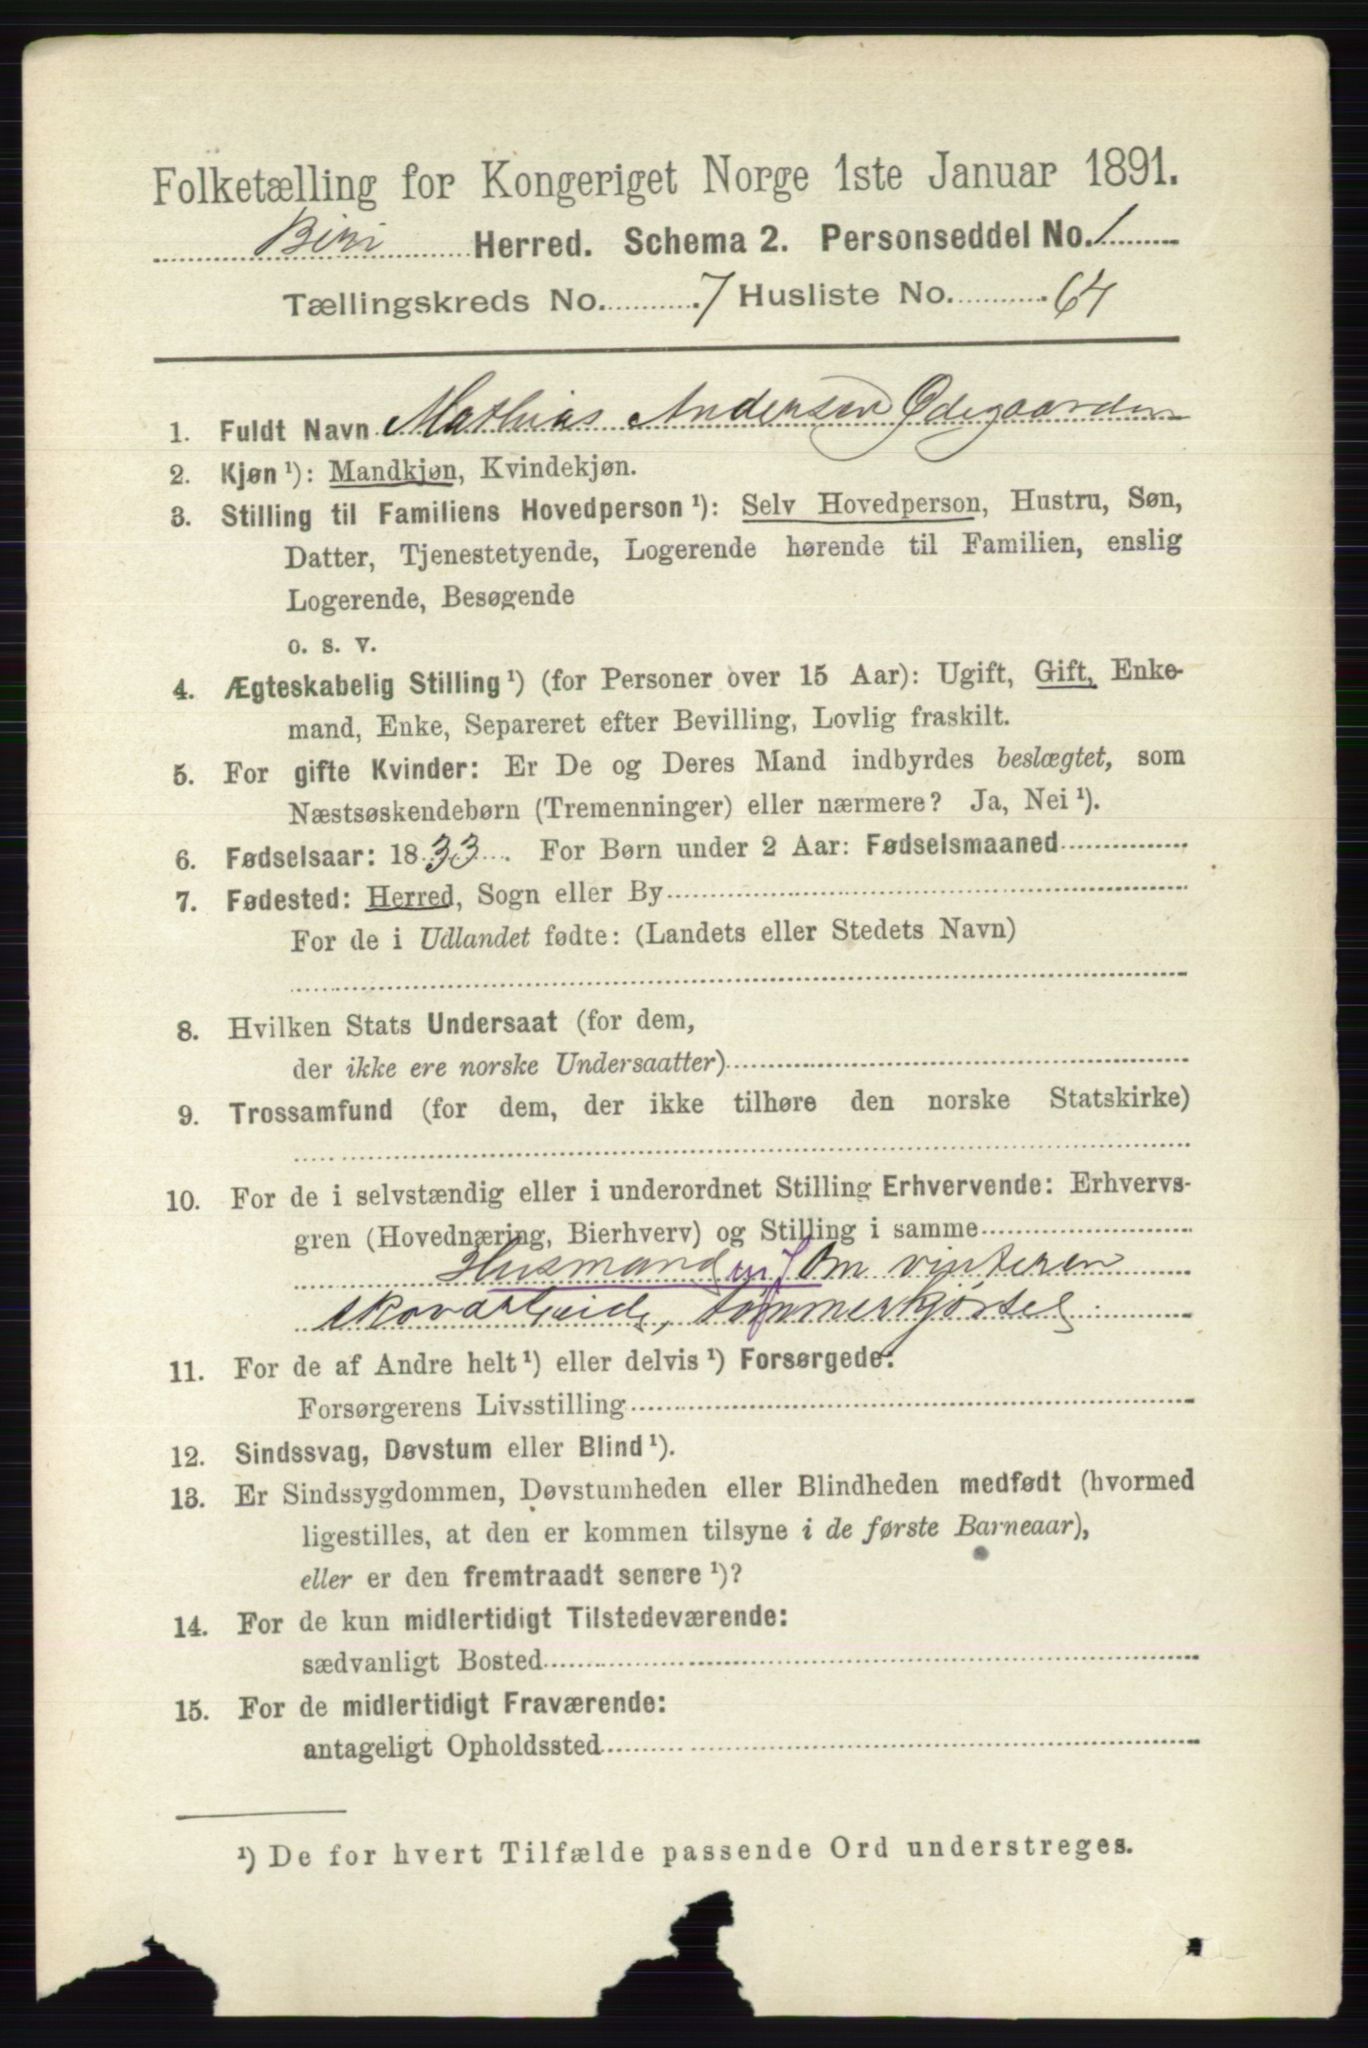 Folketælling for Kongeriget Norge 1ste Januar 1891.
Biri Herred. Schema 2. Personseddel No. 1
Tællingskreds No. 7 Husliste No. 64
1. Fuldt Navn Mathias Andersen Ødegaarden
2. Kjøn ¹): Mandkjøn, Kvindekjøn.
3. Stilling til Familiens Hovedperson ¹): Selv Hovedperson, Hustru, Søn,
Datter, Tjenestetyende, Logerende hørende til Familien, enslig
Logerende, Besøgende
o. s. v.
4. Ægteskabelig Stilling ¹) (for Personer over 15 Aar): Ugift, Gift, Enke-
mand, Enke, Separeret efter Bevilling, Lovlig fraskilt.
5. For gifte Kvinder: Er De og Deres Mand indbyrdes beslægtet, som
Næstsøskendebørn (Tremenninger) eller nærmere? Ja, Nei ¹).
6. Fødselsaar: 1833. For Børn under 2 Aar: Fødselsmaaned
7. Fødested: Herred, Sogn eller By
For de i Udlandet fødte: (Landets eller Stedets Navn)
8. Hvilken Stats Undersaat (for dem,
der ikke ere norske Undersaatter)
9. Trossamfund (for dem, der ikke tilhøre den norske Statskirke)
10. For de i selvstændig eller i underordnet Stilling Erhvervende: Erhvervs-
gren (Hovednæring, Bierhverv) og Stilling i samme
Husmand m J Om vinteren
skovarbeide, tømmerkjørsel
11. For de af Andre helt ¹) eller delvis ¹) Forsørgede:
Forsørgerens Livsstilling
12. Sindssvag, Døvstum eller Blind ¹).
13. Er Sindssygdommen, Døvstumheden eller Blindheden medfødt (hvormed
ligestilles, at den er kommen tilsyne i de første Barneaar),
eller er den fremtraadt senere ¹)?
14. For de kun midlertidigt Tilstedeværende:
sædvanligt Bosted
15. For de midlertidigt Fraværende:
antageligt Opholdssted
¹) De for hvert Tilfælde passende Ord understreges.